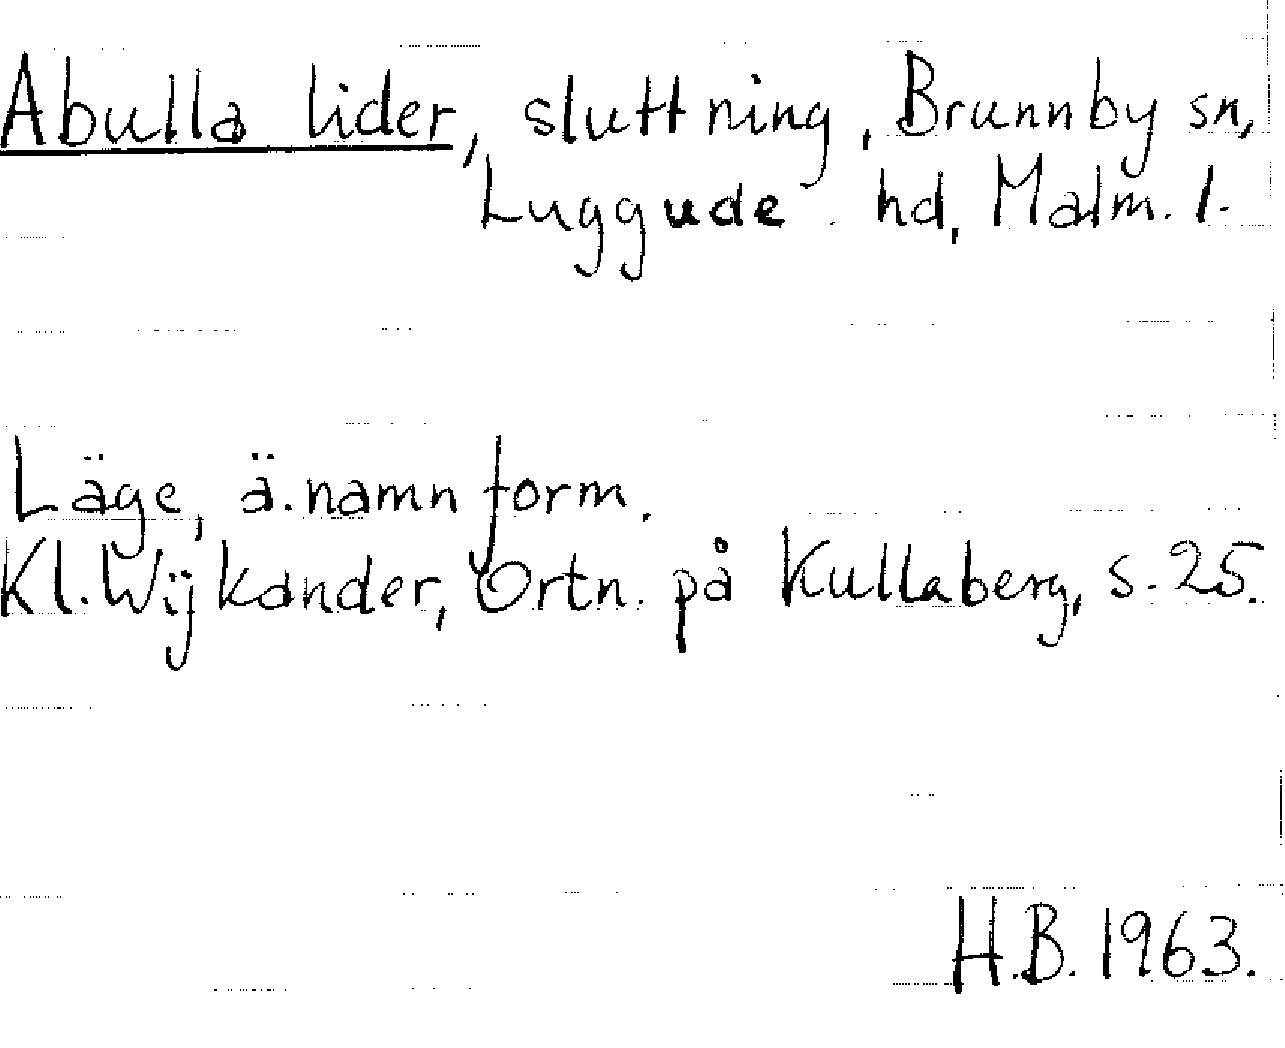 Abulla lider, sluttning, Brunnby sn,
Luggude hd, Malm. l.
Läge, ä. namnform.
Kl. Wijkander, Ortn. på Kullaberg, s. 25.
H.B. 1963.